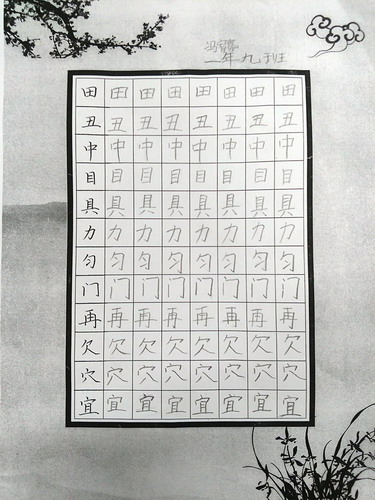 二年九班
田田田田田田田田
丑丑丑丑丑丑丑丑
中中中中中中中中
目目目目目目目目
具具具具具具具具
力力力力力力力力
匀匀匀匀匀匀匀匀
门门门门门门门门
再再再再再再再再
欠欠欠欠欠欠欠欠
穴穴穴穴穴穴穴穴
宜宜宜宜宜宜宜宜